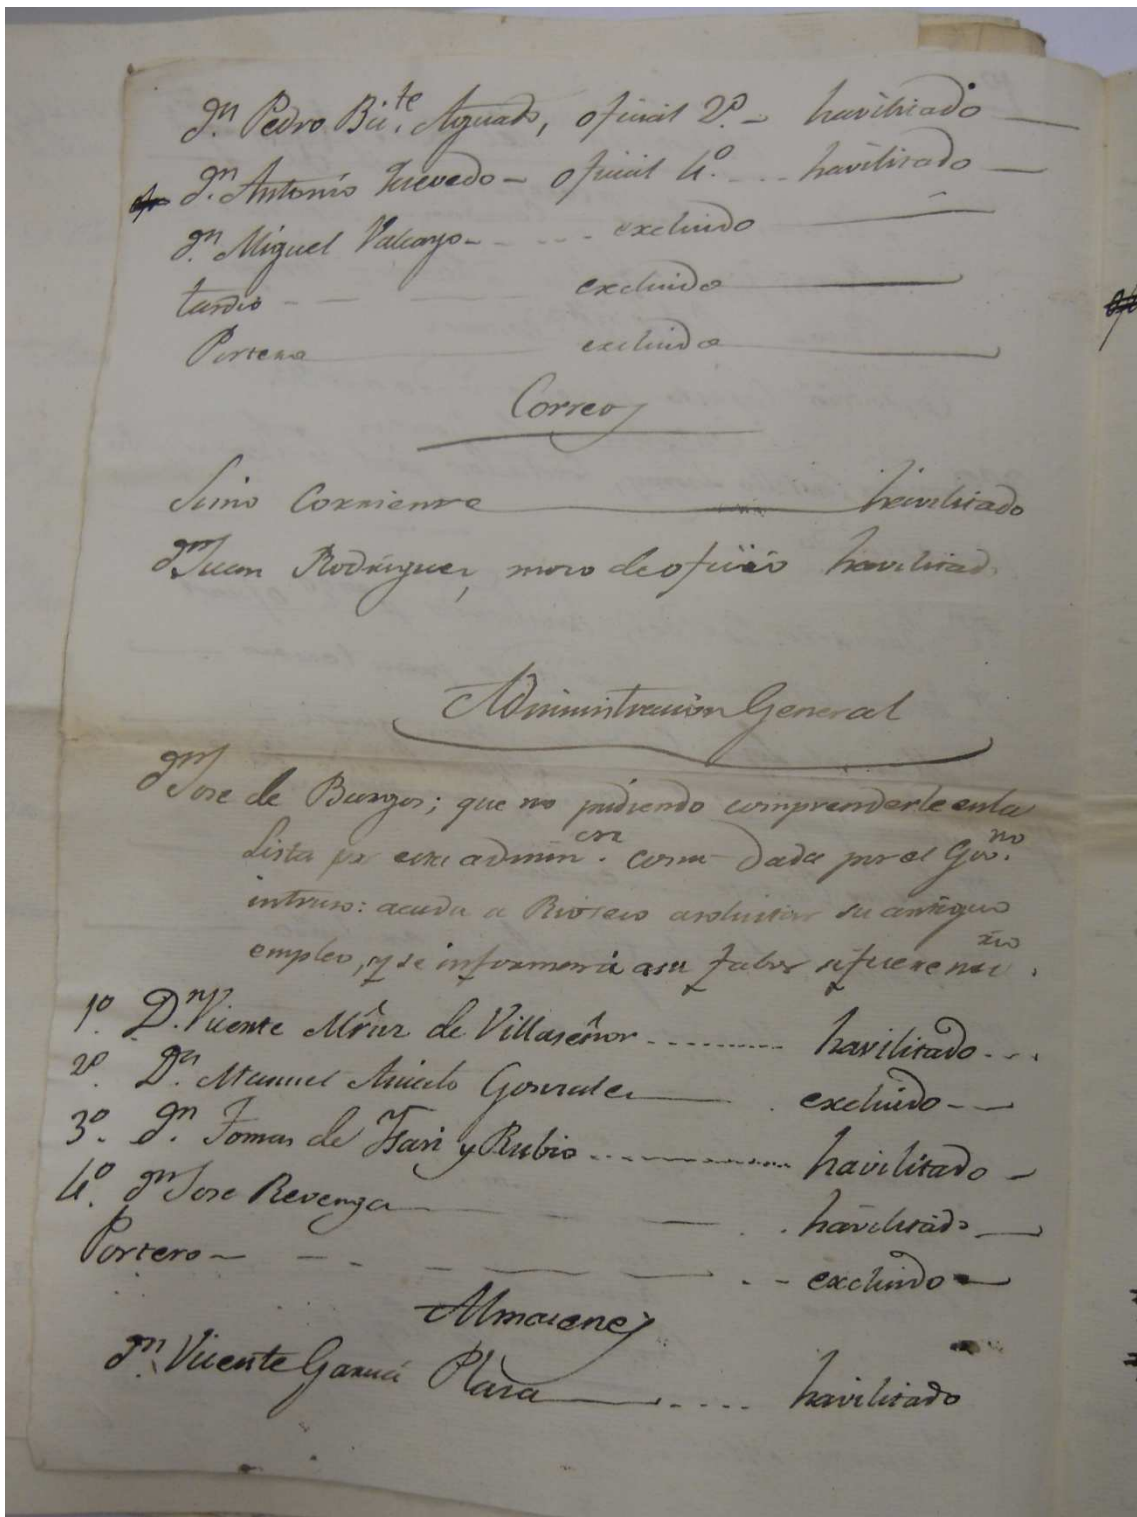 Dn. Pedro Bite. Aguado, oficial 2º. - havilitado
Dn. Antonio Quevedo - oficial 4º. --- havilitado
Dn. Miguel Valcayo - - - - - excluido
tardio - - - excluido
Portero excluido
Correos
Simo Corriente havilitado
Dn Juan Rodriguez, mozo de oficio havilitado
Administracion General
Dn Jose de Burgos; que no pudiendo comprenderle en la
Lista por esta adminon. como dada por el Govno.
intruso: acuda a Rioseco a solicitar su antiguo
empleo, y se informará a su favor si fuere
1º. Dn. Vicente Mrñz de Villaseñor ......... havilitado ...
2º. Dn. Manuel Aniceto Gonzalez . excluido --
3º. Dn. Tomas de Isari y Rubio ......... havilitado -
4º. Dn Jose Revenga . havilitado
Portero - - - excluido
Almacenes
Dn. Vicente Garcia Plaza .... havilitado